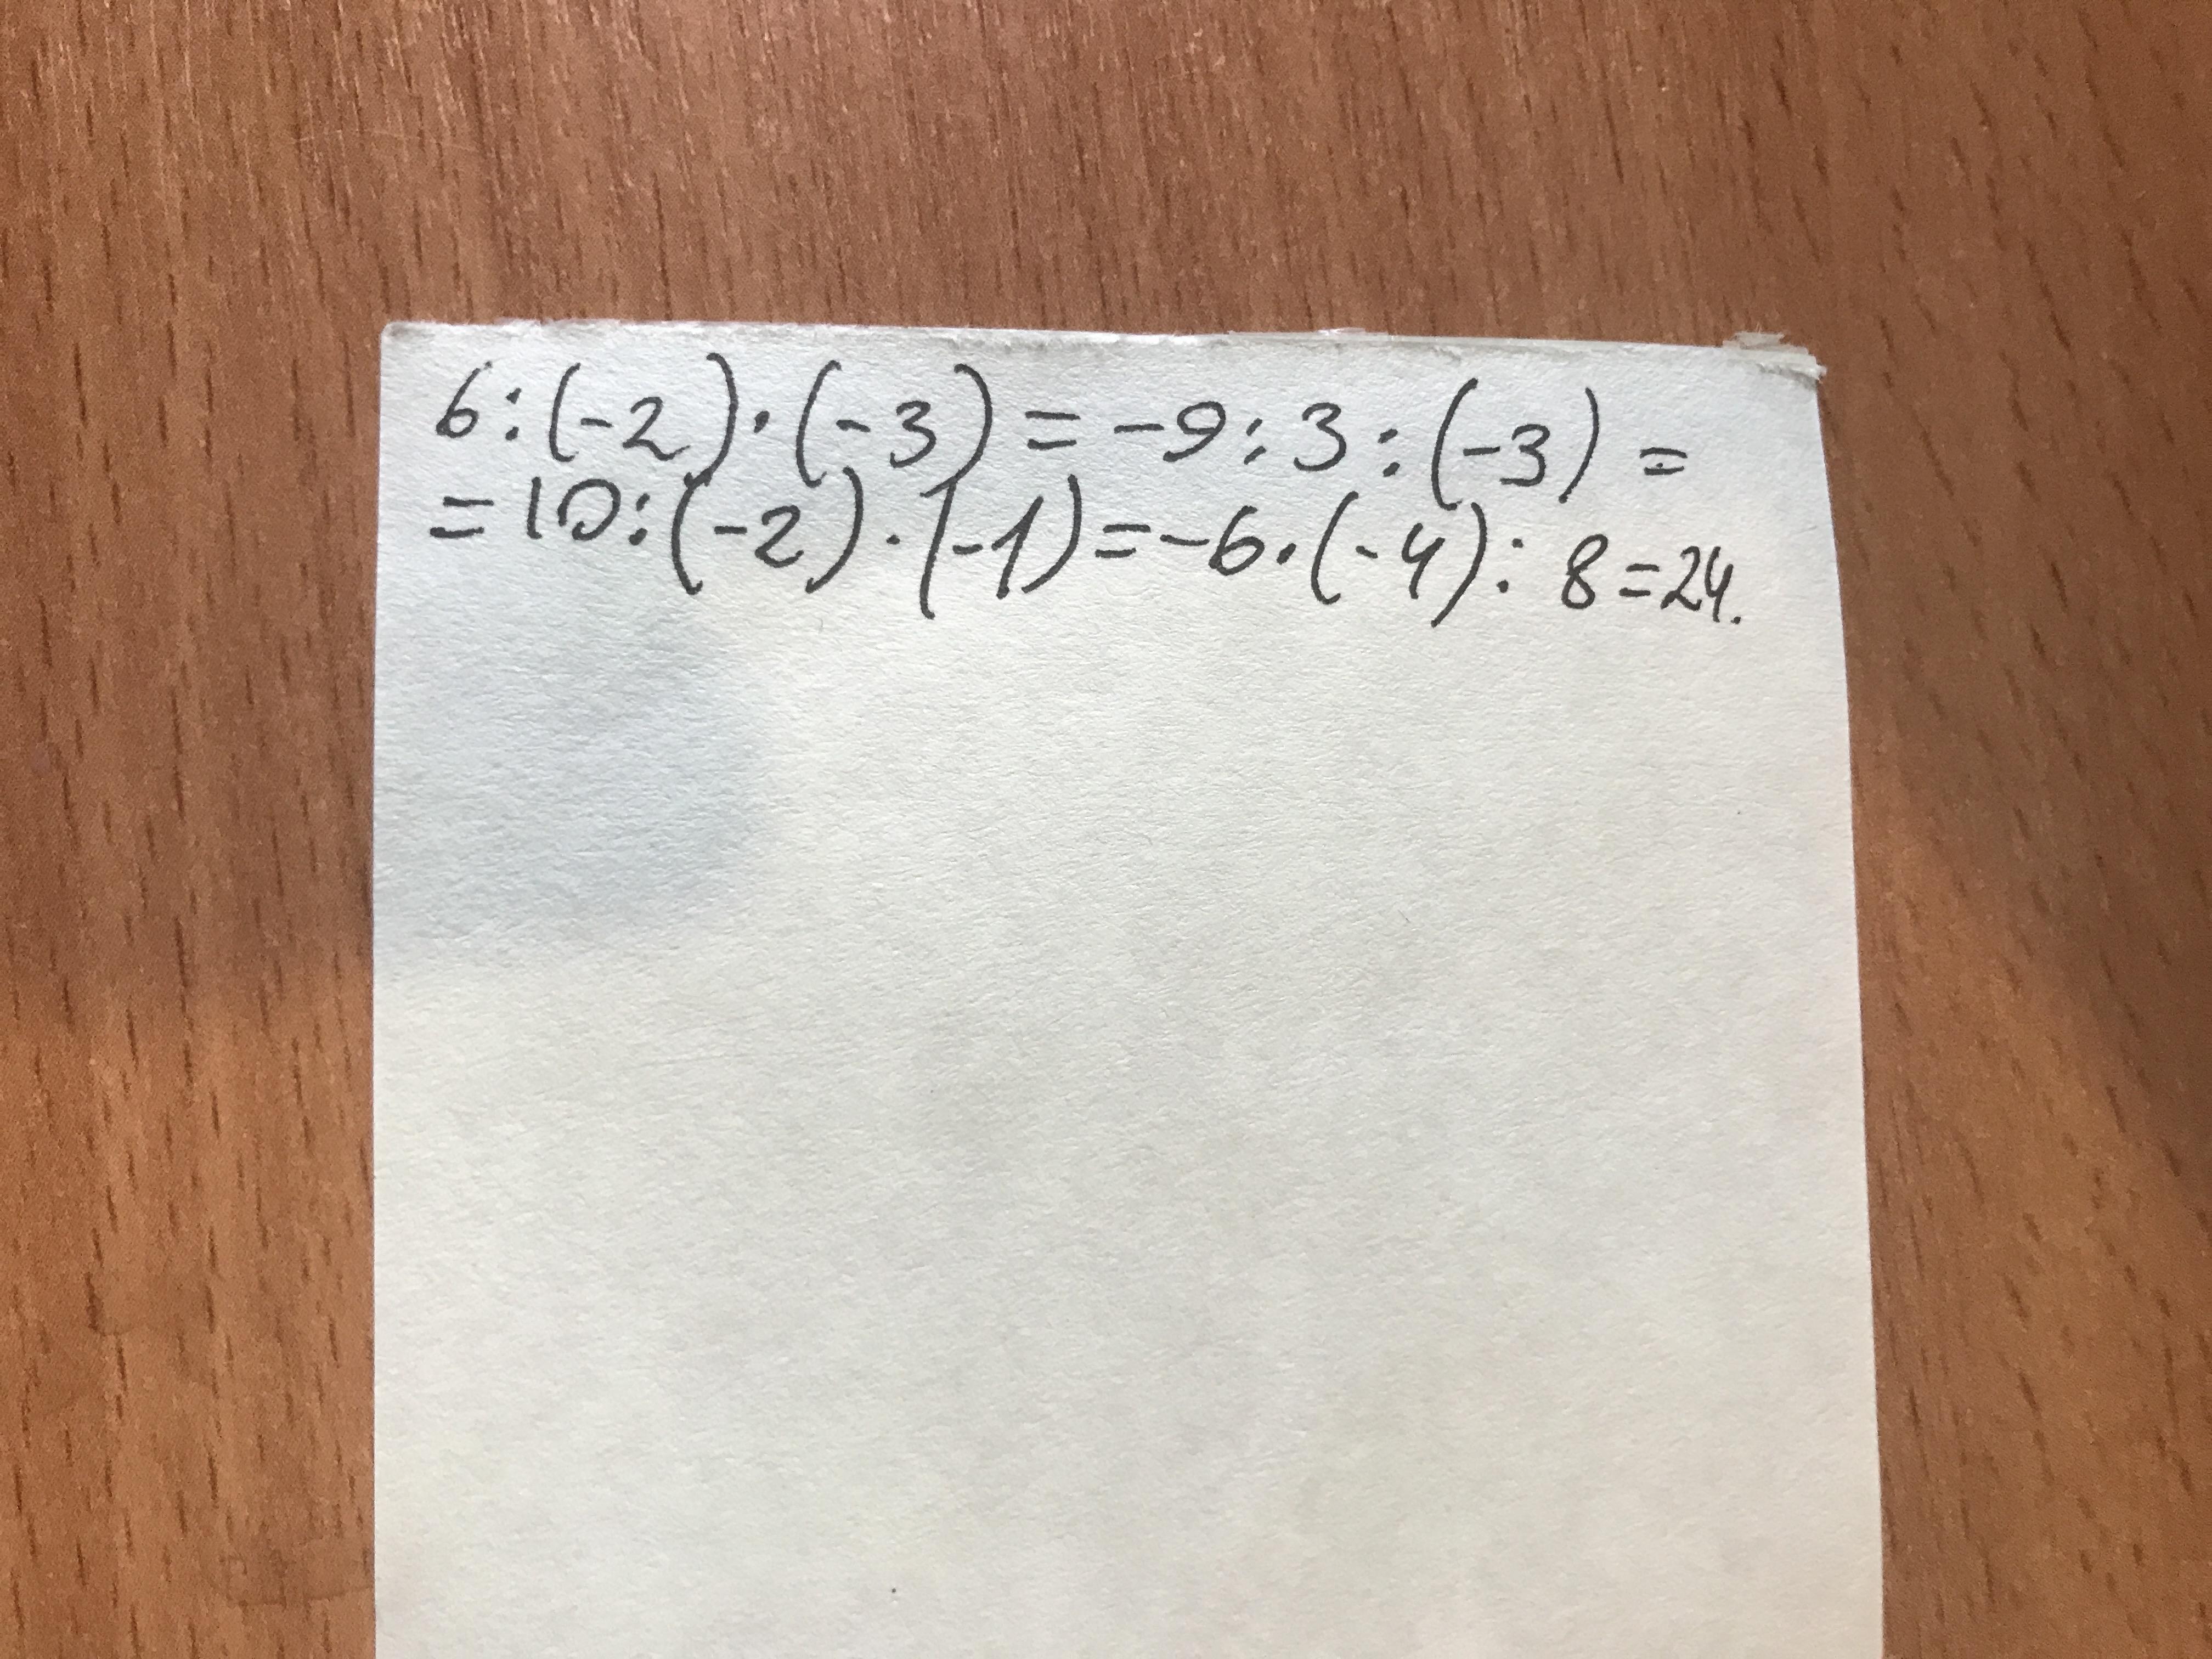 6:(-2)·(-3)=-9:3:(-3)=
=10:(-2)·(-1)=-6·(-4):8=24.